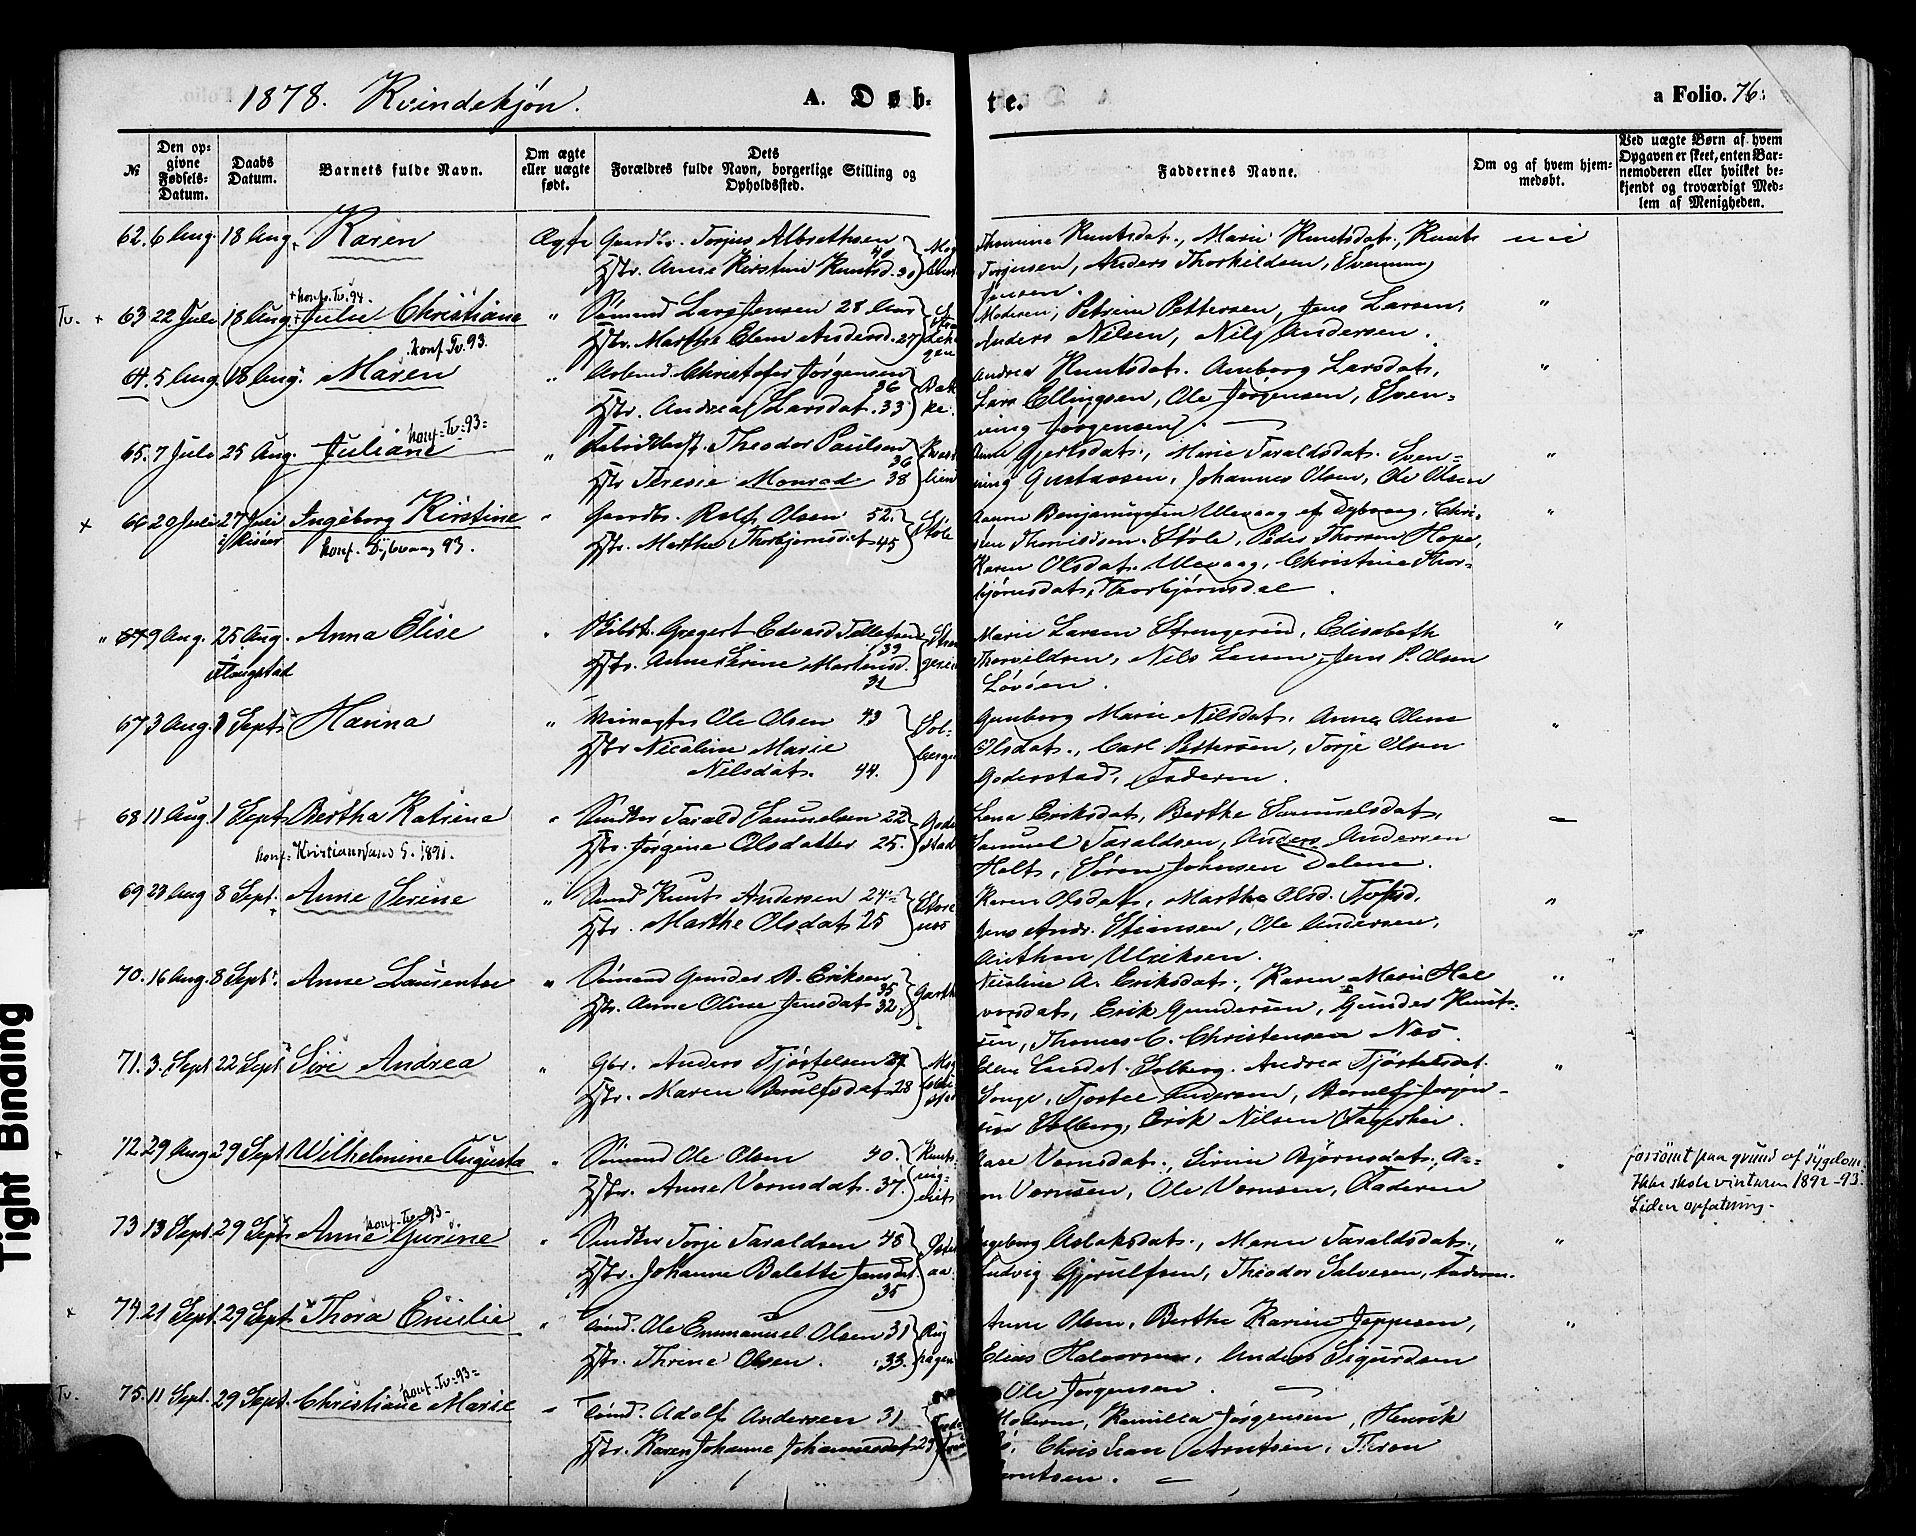 1878. Kvindekjøn.
A. Døb-
te.
a Folio. 76.
№
Den opgivne Fødsels-Datum.
Daabs Datum.
Barnets fulde Navn.
Om ægte eller uægte født.
Dets Forældres fulde Navn, borgerlige Stilling og Opholdssted.
Faddernes Navne.
Om og af hvem hjemmedøbt.
Ved uægte Børn af hvem Opgaven er skeet, enten Barnemoderen eller hvilket bekjendt og troværdigt Medlem af Menigheden.
62. 6 Aug. 18 Aug. Karen Ægte Gaardbr. Torjus Albrethsen 40
Hstr. Anne Kirstine Knutsd. 30
Thomine Knutsdat., Marie Knutsdat., Knut
Torjussen, Anders Thorkildsen, Svenning
Jensen.
nei
Tv. + 63 22 Juli 18 Aug. Julie Christiane
+ konf. Tv. 94.
" Sömand Lars Jensen 28 Aar
Hstr. Marthe Elene Andersd. 27
Moderen, Petrine Pettersen, Jens Larsen,
Anders Nilsen, Nils Andersen.
"
64. 5 Aug. 18 Aug. Maren
konf. Tv. 93.
" Arbmd. Christofer Jørgensen 36
Hstr. Andrea Larsdat. 33
Bakke.
Andrea Knutsdat. Amborg Larsdat,
Lars Ellingsen, Ole Jørgensen, Sven-
ning Jørgensen.
"
65. 7 Juli 25 Aug. Juliane
konf. Tv. 93.
" Theodor Paulsen 36
Hstr Teresie Monrad 38
Anne Gjertsdat., Marie Taraldsdat. Sven-
ning Gustavsen, Johannes Olsen, Ole Olsen
"
+ 66 20 Juli 27 Juli i Risør Ingeborg Kirstine
konf. Dybvaag 93.
" Gaardbr. Rolf Olsen 52.
Hstr. Marthe Thorbjørnsdat 45
Støle
Aanne Benjaminsen Ulevaag af Dybvaag, Chri-
Thorvildsen Støle, Peder Thorsen Hope,
Karen Olsdat. Ulevaag, Christine Thor-
bjørnsdat., Thorbjørnsdal.
"
" 67 9 Aug. 25 Aug. Flangstad Anna Elise
" Gregert Edvard Tellefsen 39
Hstr. Anne Serine Martinsd. 31
Marie Larsen Strengereid, Elisabeth
Thorvildsen, Nils Larsen, Jens P. Olsen
Løvöen.
"
67 3 Aug. 1 Sept. Hanna
" Ole Olsen 43
Hstr Nicoline Marie
Nilsdat. 44.
Gunborg Marie Nilsdat. Anne Olene
Olsdat., Carl Pettersen, Torje Olsen
Goderstad, Faderen.
"
68 11 Aug. 1 Sept. Bertha Katrine
konf. Kristianssand S. 1891.
" Taral Samuelsen 22
Hstr. Jørgine Olsdatter 25.
Goderstad
Lena Eriksdat, Berthe Samuelsdat.
Samuel Taraldsen, Anders Andersen
Holt, Søren Johnsen Dalene.
69 23 Aug 8 Sept. Anne Serine
" Sømd Knut Andersen 24
Hstr. Marthe Olsdat 25
Karen Olsdat, Marthe Olsd.
Jens Andr. Steensen, Ole Andersen,
Ulriksen.
"
70. 16 Aug. 8 Sept. Anne Laurentse
" Sömand Gunder A. Eriksen 35
Hstr. Anne Oline Jensdat 32
Nicoline A. Eriksdat., Karen Marie Hal
vorsdat, Erik Gundersen, Gunder Knut-
sen, Thomas C. Christensen Næs.
"
71. 3. Sept 22 Sept. Siri Andrea
" Gbr. Anders Tjøstelsen
Hstr. Maren Berulfsdat 28
Larsdat Solberg. Andrea Tjøstelsdat.
Songe, Tjostel Andersen, Berulf Jørgen-
sen Solberg, Erik Nilsen Fagerhei.
"
72. 29 Aug 29 Sept. Wilhelmine Augusta
" Sömand Ole Olsen 40.
Hstr. Anne Vernsdat. 37.
Aase Vernsdat., Sirine Bjørnsdat.,
Vernsen, Ole Vernsen, Faderen
"
forsømt paa grund af sygdom.
Ikke skole vinteren 1892-93.
Liden opfatning.
73 13 Sept. 29 Sept. Anne Gurine
konf. Tv. 93.
" Torje Taraldsen 48
Hstr. Johanne Balette Jensdat. 35
Ingeborg Aslaksdat., Maren Taraldsdat.,
Ludvig Gjerulfsen, Theodor Salvesen, Faderen.
"
+ 74. 21 Sept. 29 Sept. Thora Emilie
" Sömd. Ole Emmanuel Olsen 31
Hstr. Thrine Olsen. 33.
Anne Olsen, Berthe Karine Jeppesen,
Elias Halvorsen, Anders Sigurdsen
Ole Jørgensen.
"
Tv. 75. 11 Sept. 29 Sept. Christiane Marie
konf. Tv. 93
" Sömd. Adolf Andersen 31
Hstr. Karen Johanne Johannesdat 29
Moderen, Kamilla Jørgensen, Henrik
Christian Arntsen, Teron
Arntsen.
Tight Binding